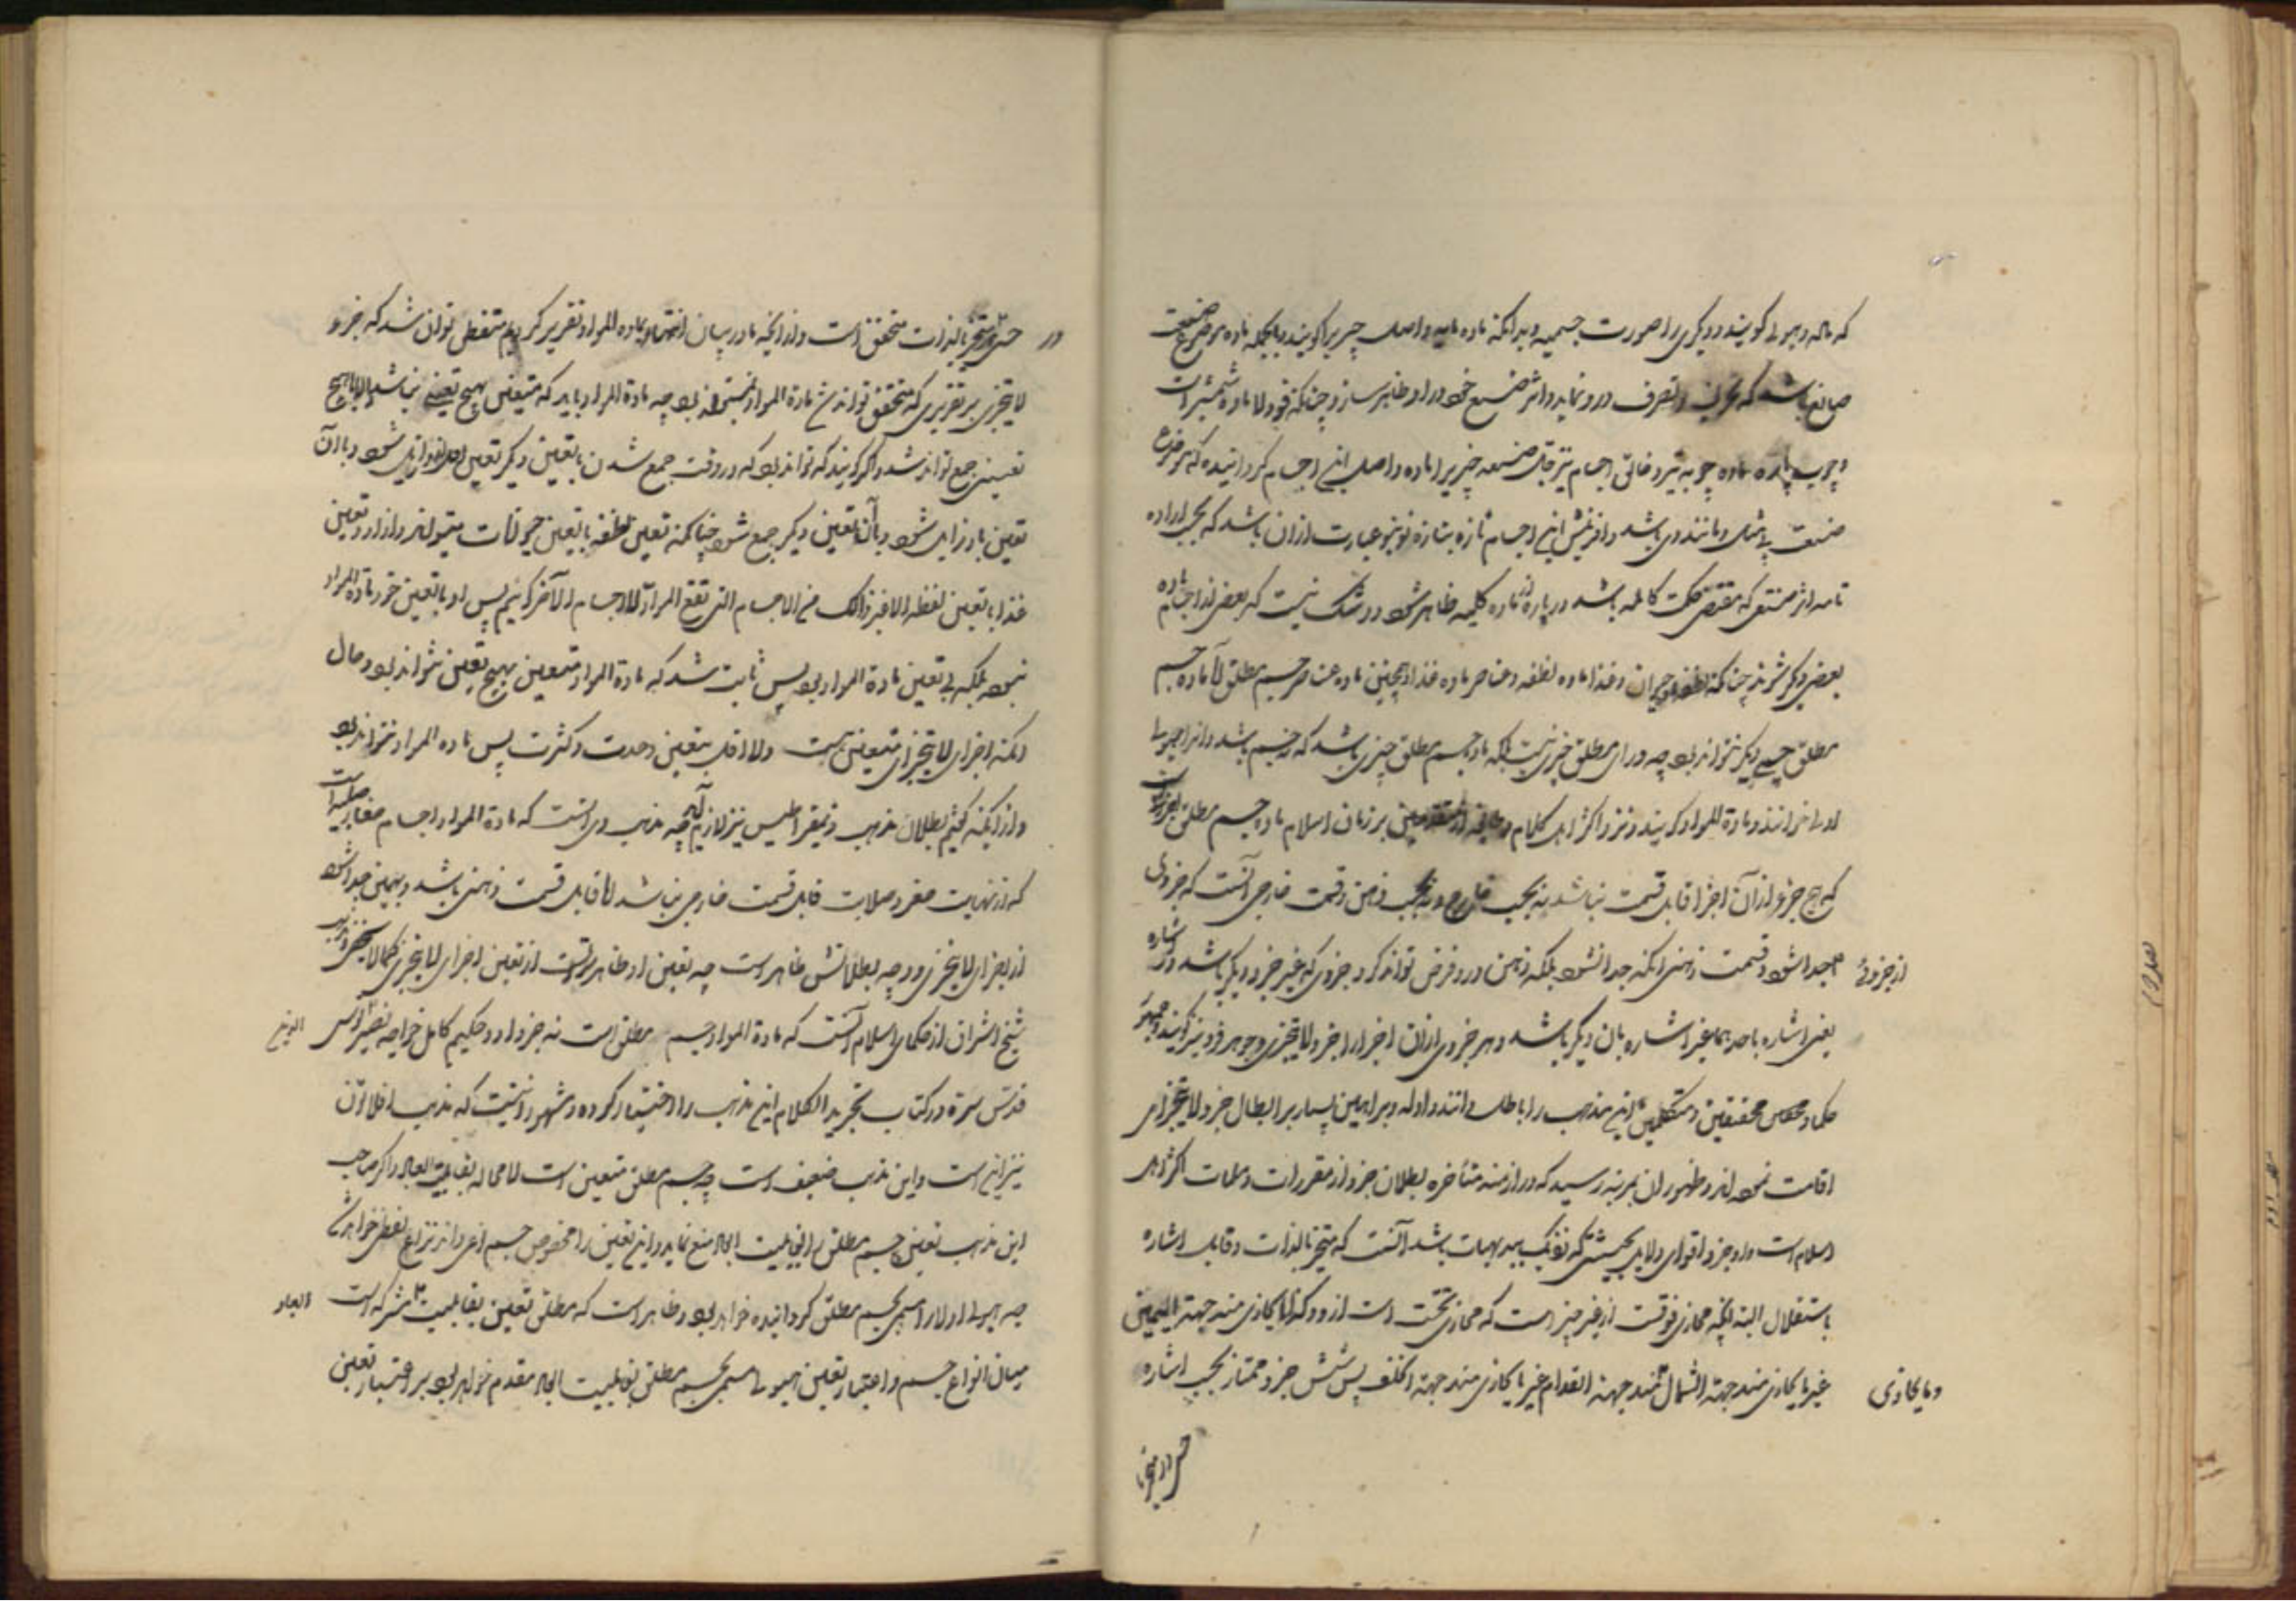 که ماده و هیولی گویند و دیگری را صورت جسمیه و بدانکه ماده مایه و اصل چیزی را گویند و بالجمله ماده موضوع صنعت
صانع باشد که تحریف و تصرف درو نماید و اثر صنع خود در او ظاهر سازد چنانکه فولاد ماده شمشیر است
و چوب پاره ماده چوبه تیر و خالق اجسام نیز قبل صنعه چیزی را ماده و اصل این اجسام گردانیده که موضوع
صنعت بی مثل و مانند وی باشد و آفرینش این اجسام تازه بتازه نو بنو عبارت از آن باشد که بحسب اراده
تامه اثر صنعتی که مقتضی حکمت کامله باشد درباره آن ماده کلیه ظاهر شود و در شک نیست که بعضی از اجسام ماده
بعضی دیگر شوند چنانکه نطفه ماده حیوان و غذا ماده نطفه و عناصر ماده غذا و همچنین ماده عناصر جسم مطلق لا ماده جسم
مطلق جسمی دیگر نتواند بود چه ورای مطلق چیزی نیست بلکه ماده جسم مطلق چیزی باشد که نه جسم باشد و آنرا هیولی
اولی خوانند و مادة المواد گویند و نزد اکثر اهل کلام و طایفه از متقدمین بر زمان اسلام ماده جسم مطلق اجزائیست
که هیچ جزو از آن اجزا قابل قسمت نباشد نه بحسب خارج و نه بحسب ذهن و قسمت خارجی آنست که جزوی
از جزوی جدا شود و قسمت ذهنی آنکه جدا نشود بلکه ذهن درو فرض تواند کرد جزوی که غیر جزو دیگر باشد در اشاره
یعنی اشاره باحدهما غیر اشاره بان دیگر باشد و هر جزوی از ان اجزا را جزو لا یتجزی و جوهر فرد نیز گویند و جمهور
حکما و محققین متکلمین این مذهب را باطل دانند و ادله و براهین بسیار بر ابطال جزو لا یتجزی
اقامت نموده اند و ظهور ان بمرتبه رسید که در ازمنه متأخره بطلان جزو از مقررات و مسلمات اکثر اهل
اسلام است و از جزو اقوای دلایل بحیثیتی که نزدیک ببدیهیات باشد آنست که متحیز بالذات و قابل اشاره
باستقلال البته آنچه محاذی فوقست از غیر چیزیست که محاذی تحت است از و و کذا ما یحاذی منه جهة الیمین
غیر ما یحاذی منه جهة الشمال و ما یحاذی منه جهة القدام غیر ما یحاذی منه جهة الخلف پس شش جزو ممتاز بحسب اشاره
در متحیز بالذات متحقق است و از آنچه ما در بیان احتیاج بماده المواد تقریر کردیم متفطن توان شد که جزو
لا یتجزی بر تقدیری که متحقق تواند شد مادة المواد نمیتواند بود چه مادة المواد باید که متعین بهیچ تعینی نباشد والا با هیچ
تعینی جمع نتواند شد و اگر گویند که تواند بود که در وقت جمع شدن با تعین دیگر تعین اول زایل شود و با آن
تعین باز زایل شود و با آن تعین دیگر جمع شود چنانکه تعین نطفه با تعین حیوانات
غذا با تعین نطفه الی غیر ذلک من الاجسام التی تقع المواد لاجسام الآخر گوئیم پس او با تعین خود مادة المواد
نبود بلکه بی تعین مادة المواد بود پس ثابت شد که مادة المواد متعین بهیچ تعین نتواند بود و حال
آنکه اجزای لا یتجزی متعین است و لا اقل بتعین وحدت و کثرت پس ماده المواد نتواند بود
و از آنکه گفتیم بطلان مذهب ذیمقراطیس نیز لازم آید چه مذهب وی آنست که مادة المواد اجسام صغار صلبه است
که از نهایت صغر و صلابت قابل قسمت خارجی نباشد لا قابل قسمت ذهنی باشد و بهمین جدا شود
از اجزای لا یتجزی و وجه بطلانش ظاهر است چه تعین او ظاهرتر است از تعین اجزای لا یتجزی کما لا یخفی و مذهب
شیخ اشراق از حکمای اسلام آنست که مادة المواد جسم مطلق است نه جزو او و حکیم کامل خواجه نصیر طوسی
قدس سره در کتاب تجرید الکلام این مذهب را اختیار کرده و مشهور آنست که مذهب افلاطون
نیز اینست و این مذهب ضعیف است چه جسم مطلق متعین است لا محاله بقابلیت ابعاد و اگر صاحب
این مذهب تعین جسم مطلق را بقابلیت ابعاد منع نماید و این تعین را مخصوص جسم نوعی داند نزاع لفظی خواهد شد
چه هیولی اولی را مسمی بجسم مطلق گردانیده خواهد بود و ظاهر است که مطلق تعین بقابلیت ابعاد مشترک است
میان انواع جسم و اعتبار تعین هیولی مسمی بجسم مطلق بقابلیت ابعاد مقدم خواهد بود بر اعتبار تعین